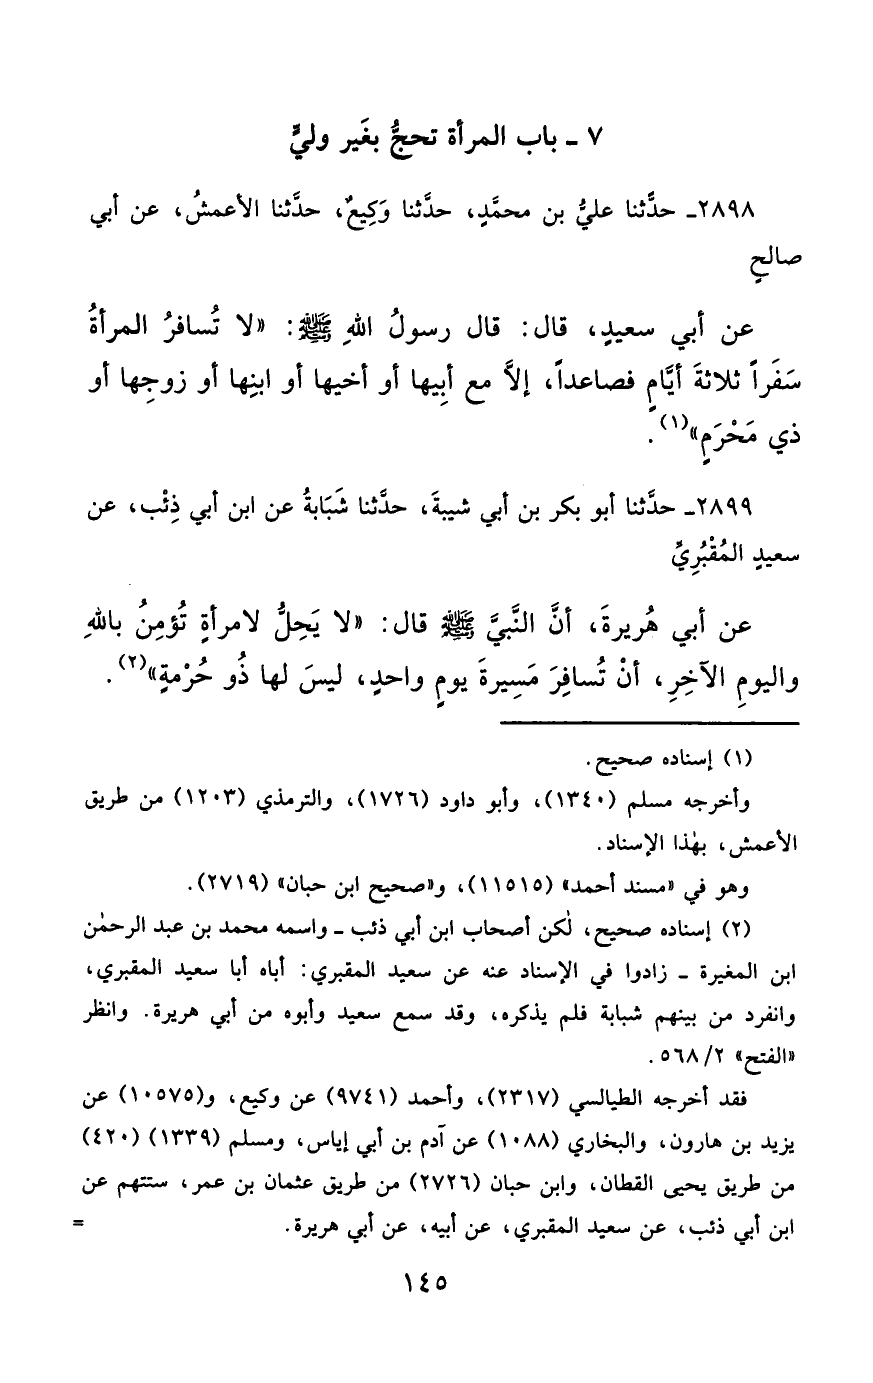 ٧ ـ باب المرأة تحجُّ بغَير وليٍّ
٢٨٩٨ـ حدَّثنا عليُّ بن محمَّدٍ، حدَّثنا وَكِيعٌ، حدَّثنا الأعمشُ، عن أبي
صالحٍ
عن أبي سعيدٍ، قال: قال رسولُ اللهِ ﷺ: «لا تُسافرُ المرأةُ
سَفَراً ثلاثةَ أيَّامٍ فصاعداً، إلاَّ مع أبِيها أو أخيها أو ابنِها أو زوجِها أو
ذي مَحْرَمٍ»(١).
٢٨٩٩ـ حدَّثنا أبو بكر بن أبي شيبةَ، حدَّثنا شَبَابةُ عن ابن أبي ذِئْب، عن
سعيدٍ المُقْبُرِيِّ
عن أبي هُريرةَ، أنَّ النَّبيَّ ﷺ قال: «لا يَحِلُّ لامرأةٍ تُؤمِنُ باللهِ
واليومِ الآخِرِ، أنْ تُسافِرَ مَسِيرةَ يومٍ واحدٍ، ليسَ لها ذُو حُرْمةٍ»(٢).
(١) إسناده صحيح.
وأخرجه مسلم (١٣٤٠)، وأبو داود (١٧٢٦)، والترمذي (١٢٠٣) من طريق
الأعمش، بهٰذا الإسناد.
وهو في «مسند أحمد» (١١٥١٥)، و«صحيح ابن حبان» (٢٧١٩).
(٢) إسناده صحيح، لٰكن أصحاب ابن أبي ذئب ـ واسمه محمد بن عبد الرحمٰن
ابن المغيرة ـ زادوا في الإسناد عنه عن سعيد المقبري: أباه أبا سعيد المقبري،
وانفرد من بينهم شبابة فلم يذكره، وقد سمع سعيد وأبوه من أبي هريرة. وانظر
«الفتح» ٥٦٨/٢.
فقد أخرجه الطيالسي (٢٣١٧)، وأحمد (٩٧٤١) عن وكيع، و(١٠٥٧٥) عن
يزيد بن هارون، والبخاري (١٠٨٨) عن آدم بن أبي إياس، ومسلم (١٣٣٩) (٤٢٠)
من طريق يحيى القطان، وابن حبان (٢٧٢٦) من طريق عثمان بن عمر، ستتهم عن
ابن أبي ذئب، عن سعيد المقبري، عن أبيه، عن أبي هريرة. =
١٤٥